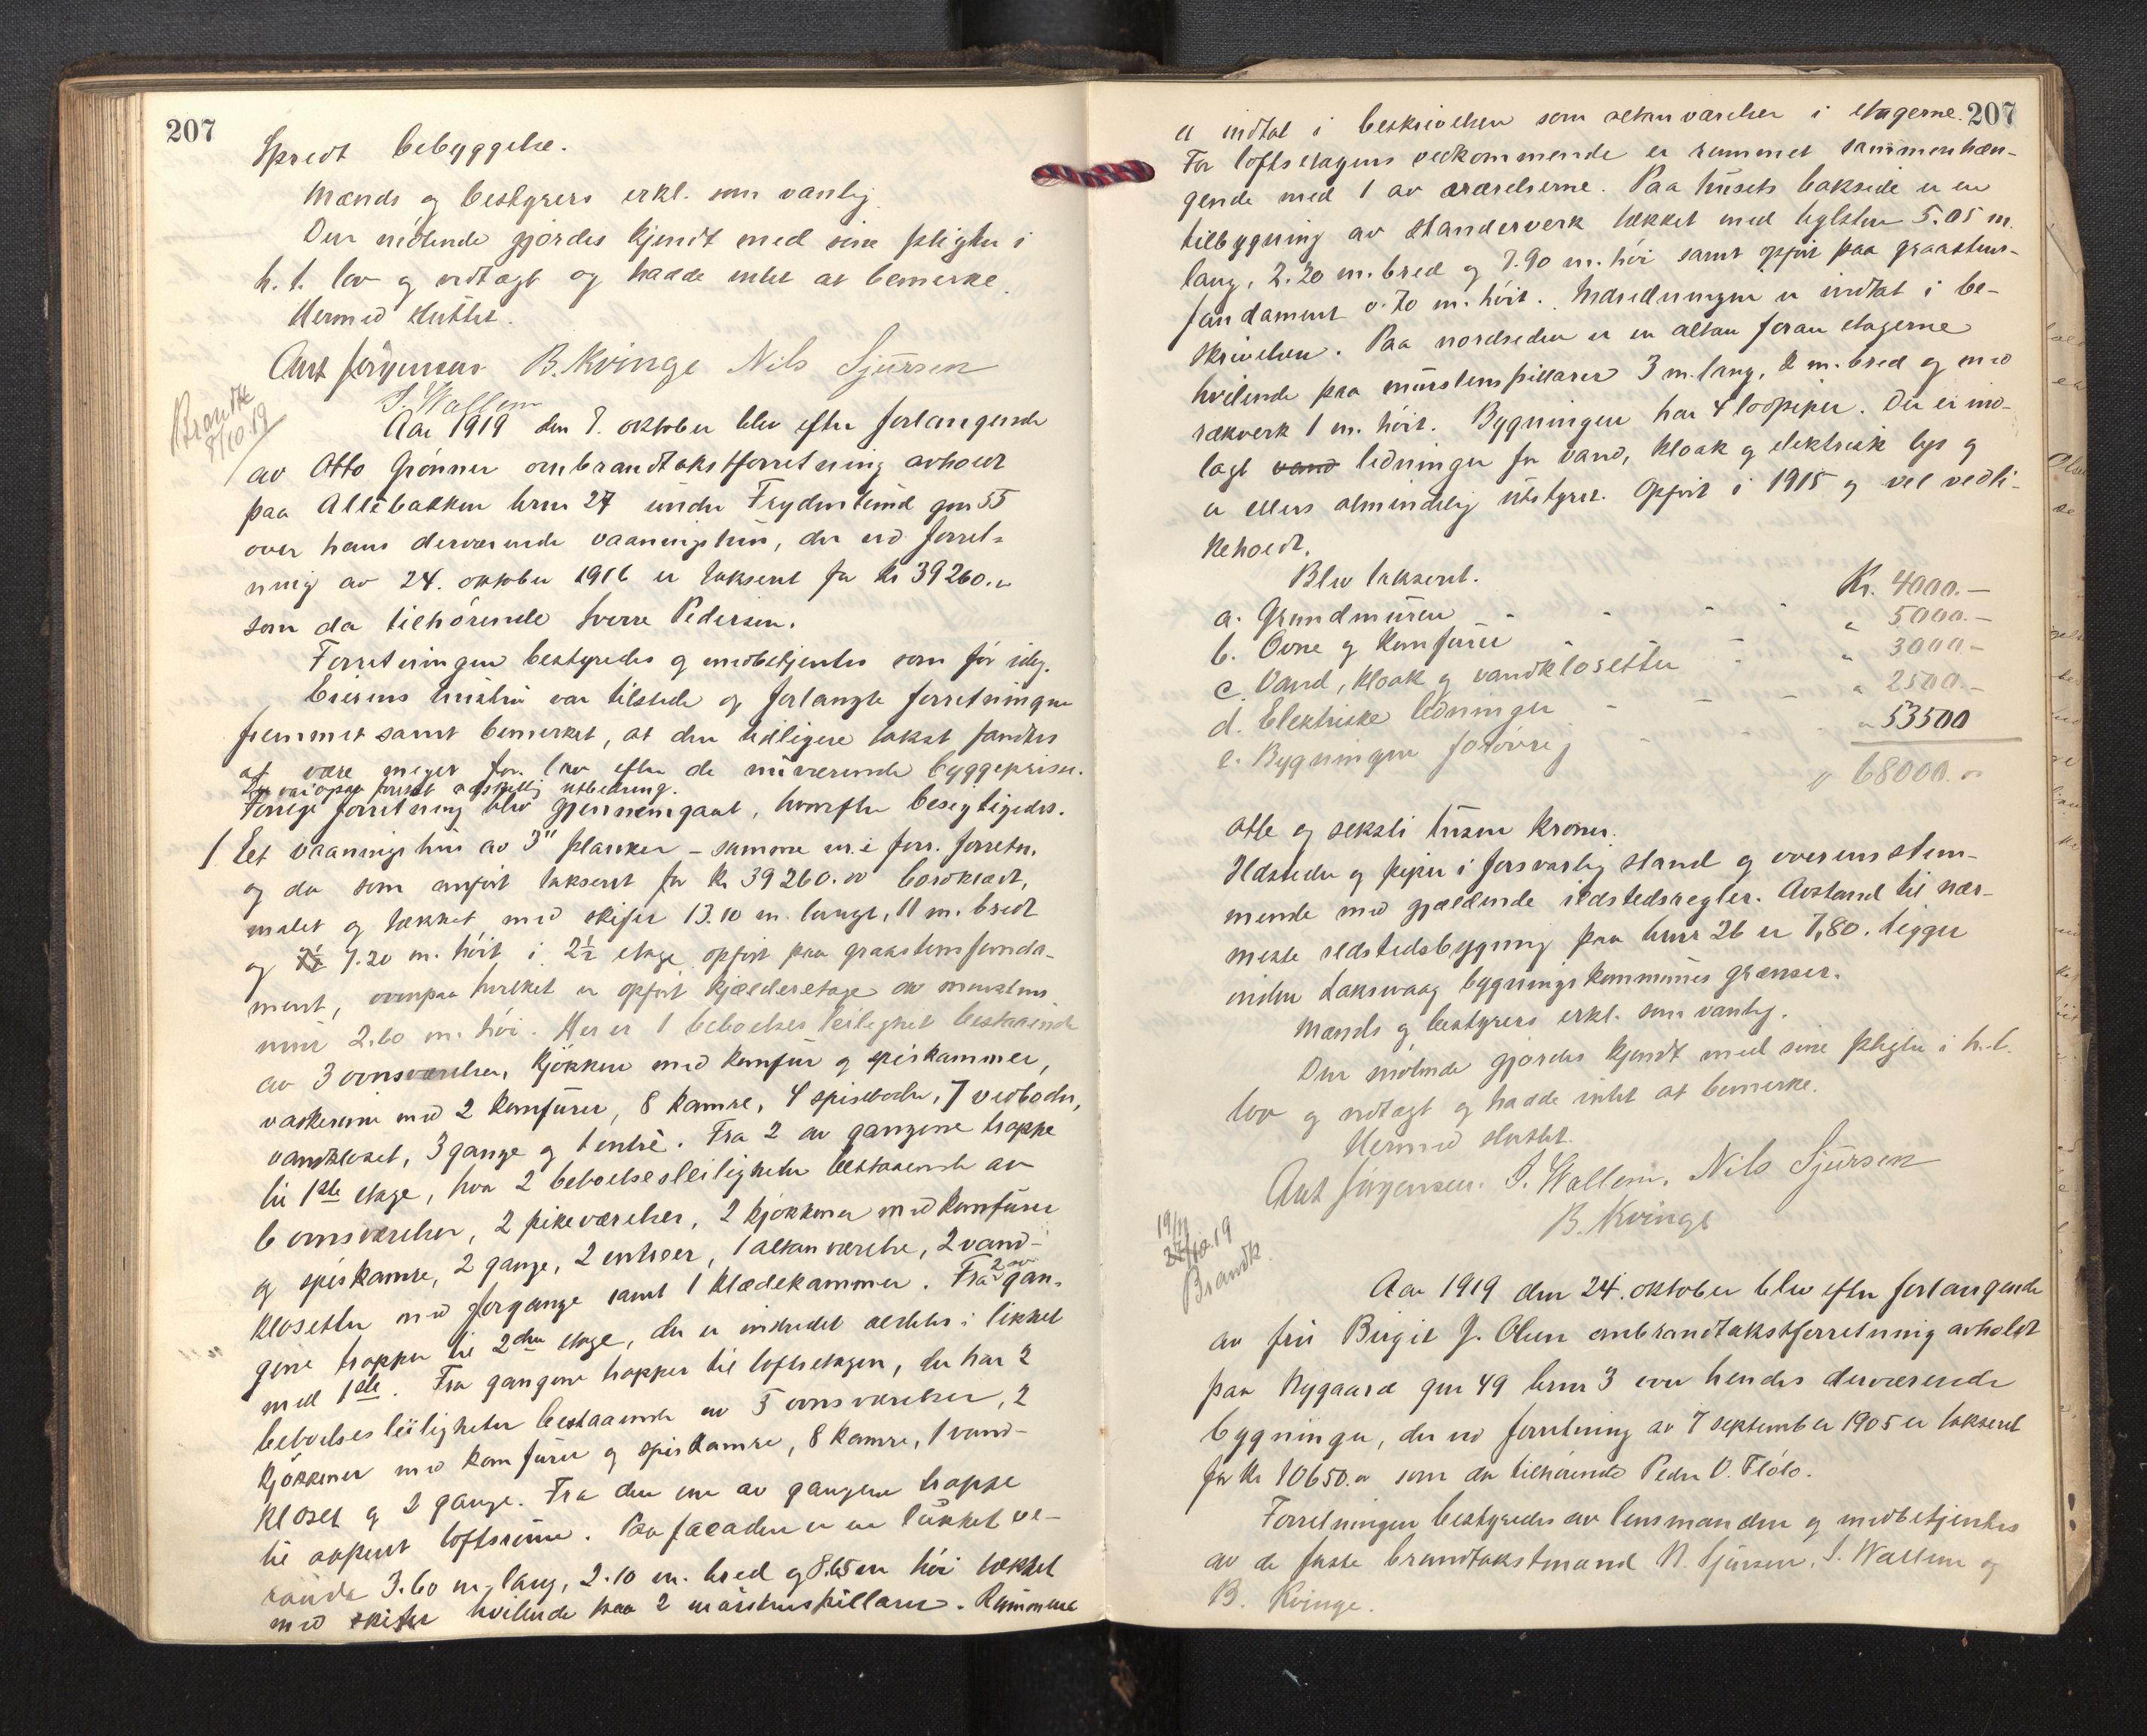 207
Spredt bebyggelse.
Mænds og bestyrers erkl. som vanlig.
Den mötende gjordes kjendt med sine pligter i
h. t. lov og vedtægt og hadde intet at bemerke.
Hermed sluttet.
Ant Jörgensen B. Kvinge Nils Sjursen
S. Wallem
Brandk
8/10.19
Aar 1919 den 7. oktober blev efter forlangende
av Otto Grönner ombrandtakstforretning avholdt
paa Allébakken brnr 27 under Frydenlund gnr 55
over hans derværende vaaningshus, der ved forret-
ning av 24. oktober 1916 er taksert for kr 39260.00
som da tilhörende Sverre Pedersen.
Forretningen bestyredes og medbetjentes som för idag.
Eierens hustru var tilstede og forlangte forretningen
fremmet samt bemerket, at den tidligere takst fandtes
at være meget for lav efter de nuværende byggepriser.
Der var ogsaa foretat adskillig utbedring.
Forrige forretning blev gjennemgaat, hvorefter besigtigedes.
1 Et vaaningshus av 3" planker - samme nr. i forr. forretn.
og da som anfört taksert for kr 39260.00 bordklædt,
malet og tækket med skifer 13.10 m. langt, 11 m. bredt
og 7.20 m. höit i 2½ etage opfört paa graastensfunda-
ment, ovenpaa hvilket er opfört kjælderetage av murstens
mur 2.60 m. höi. Her er 1 beboelses leilighet bestaaende
av 3 ovnsværelser, kjökken med komfur og spiskammer,
vaskerum med 2 komfurer, 8 kamre, 4 spiseboder, 7 vedboder,
vandkloset, 3 gange og 1 entré. Fra 2 av gangene trappe
til 1ste etage, hvor 2 beboelsesleiligheter bestaaende av
6 ovnsværelser, 2 pikeværelser, 2 kjökkener med komfurer
og spiskamre, 2 gange, 2 entreer, 1 altanværelse, 2 vand-
klosetter med forgange samt 1 klædekammer. Fra 2 av gan-
gene trapper til 2den etage, der er indredet aldeles i likhet
med 1ste. Fra gangene trapper til loftsetagen, der har 2
beboelsesleiligheter bestaaende av 5 ovnsværelser, 2
kjökkener med komfurer og spiskamre, 8 kamre, 1 vand-
kloset og 2 gange. Fra den ene av gangene trappe
til avpent loftsrum. Paa facaden er en lukket ve-
randa 3.60 m. lang, 2.10 m. bred og 8.65 m höi tækket
med skifer hvilende paa 2 murstenspillarer. Rummene
207
er indtat i beskrivelsen som altanværelser i etagerne.
For loftsetagens vedkommende er rummet sammenhæn-
gende med 1 av værelserne. Paa husets bakside er en
tilbygning av standerverk tækket med teglsten 5.05 m.
lang, 2.20 m. bred og 7.90 m. höi samt opfört paa graastens-
fundament 0.70 m. höit. Indredningen er indtat i be-
skrivelsen. Paa nordsiden er en altan foran etagerne
hvilende paa murstenspillarer 3 m. lang, 2 m. bred og med
rækverk 1 m. höit. Bygningen har 4 löpiper. Der er ind-
lagt vand ledninger for vand, kloak og elektrisk lys og
er ellers almindelig utstyret. Opfört i 1915 og vel vedli-
keholdt.
Blev taksert.
a. Grundmuren - - - - Kr. 4000.—
b. Ovne og komfurer - - " 5000.—
c. Vand, kloak og vandklosetter - " 3000.—
d. Elektriske ledninger - - - " 2500.—
e. Bygningen forövrig - - - " 53500
" 68000.00
otte og seksti tusen kroner.
Ildsteder og piper i forsvarlig stand og overensstem-
mende med gjældende ildstedsregler. Avstand til nær-
meste ildstedsbygning paa brnr 26 er 7,80. Ligger
inden Laksevaag bygningskommunes grænser.
Mænds og bestyrers erkl. som vanlig.
Den mötende gjordes kjendt med sine pligter i h. t.
lov og vedtægt og hadde intet at bemerke.
Hermed sluttet.
Ant Jörgensen. S. Wallem. Nils Sjursen
B. Kvinge
19/11
27/10.19
Brandk.
Aar 1919 den 24. oktober blev efter forlangende
av fru Birgit J. Olsen ombrandtakstforretning avholdt
paa Nygaard gnr 49 brnr 3 over hendes derværende
bygninger, der ved forretning av 7 september 1905 er taksert
for kr 10650.00 som da tilhörende Peder O. Flölo.
Forretningen bestyredes av lensmanden og medbetjentes
av de faste brandtakstmænd N. Sjursen, S. Wallem og
B. Kvinge.